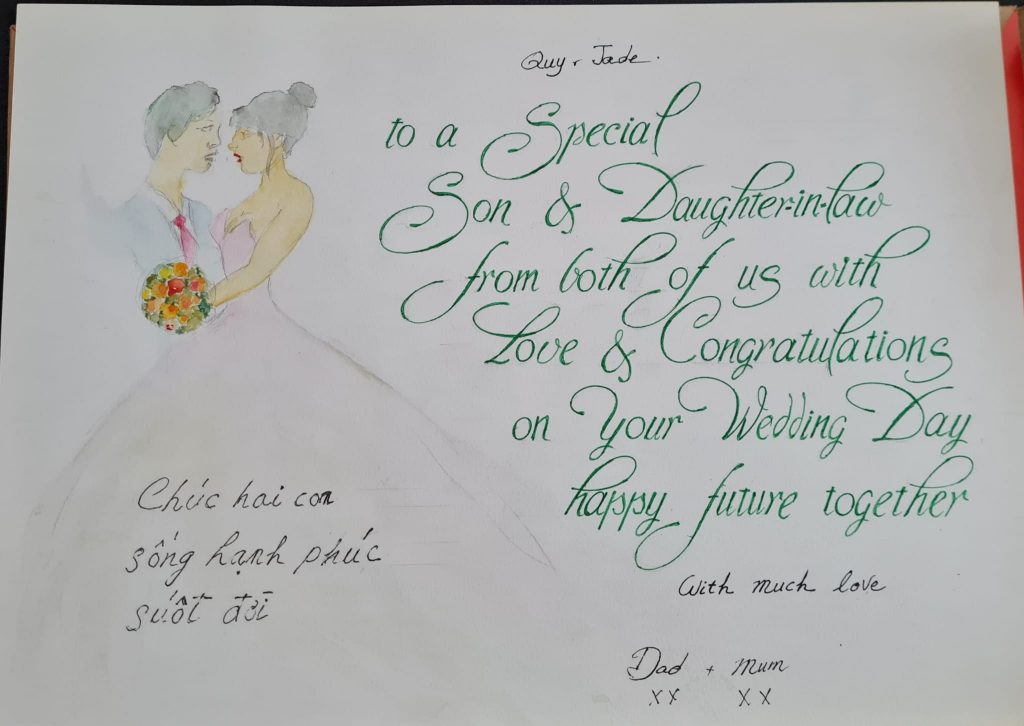 Quy + Jade.
to a Special
Son & Daughter-in-law
from both of us with
Love & Congratulations
on Your Wedding Day
happy future together
Chúc hai con
sống hạnh phúc
suốt đời
With much love
Dad + Mum
xx xx